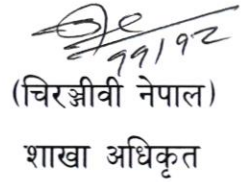 ११/१२
(चिरञ्जीवी नेपाल)
शाखा अधिकृत